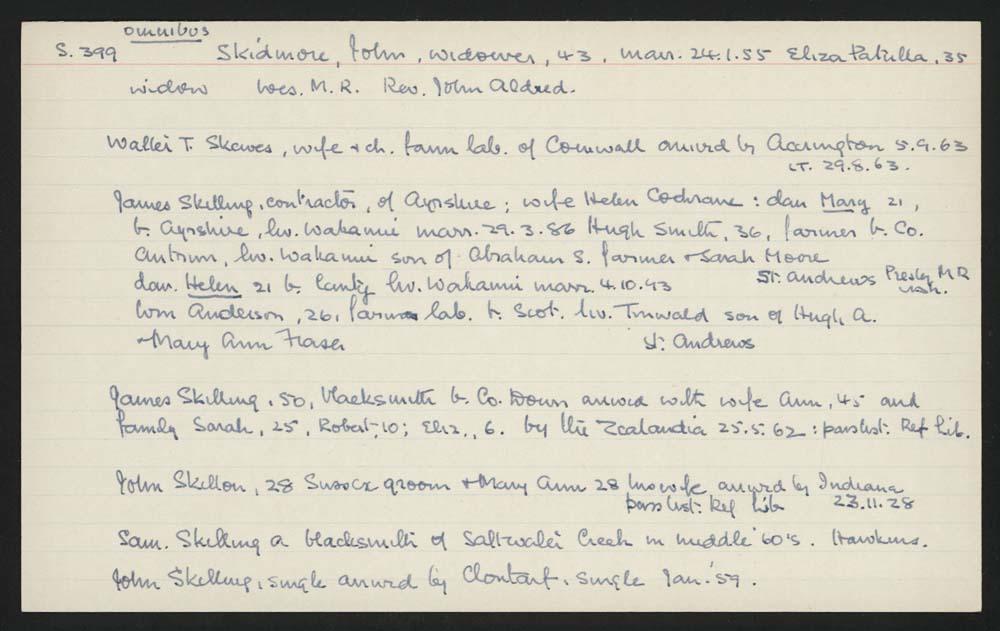 omnibus
S. 399 Skidmore, John, widower, 43, marr. 24.1.55 Eliza Patulla, 35
widow Wes. M.R. Rev. John Aldred.
Walter T. Skewes, wife & ch. farm lab. of Cornwall arrived by Accrington 5.9.63
LT. 29.8.63.
James Skilling, contractor, of Ayrshire; wife Helen Cochrane: dau Mary 21,
b. Ayrshire, liv. Wakanui marr. 29.3.86 Hugh Smith, 36, farmer b. Co.
Antrim, liv. Wakanui son of Abraham S. farmer & Sarah Moore
St. Andrews Presby M.R
dau. Helen 21 b. Canty liv. Wakanui marr. 4.10.93
Wm Anderson, 26, farm lab. b. Scot. liv. Tinwald son of Hugh A.
& Mary Ann Fraser St. Andrews
James Skilling, 50, blacksmith b. Co. Down arrived with wife Ann, 45 and
family Sarah, 25, Robert, 10; Eliz., 6. by the Zealandia 25.5.62: pass list: Ref Lib.
John Skillon, 28 Sussex groom & Mary Ann 28 his wife arrived by Indiana
pass list: Ref Lib 23.11.28
Sam. Skilling a blacksmith of Saltwater Creek in middle '60's. Hawkins.
John Skelling, single arrived by Clontarf, single Jan. '59.